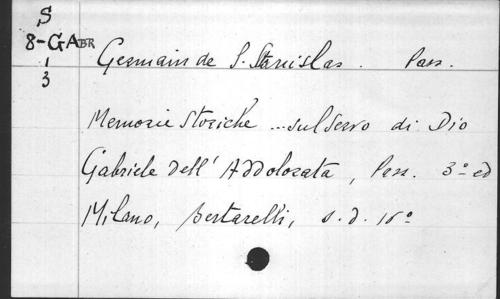 S
8-GABR
1
3
Germain de S. Stanislas. Pass.
Memorie Storiche ... sul Servo di Dio
Gabriele dell' Addolorata, Pass. 3º ed
Milano, Bertarelli, s.d. 16º